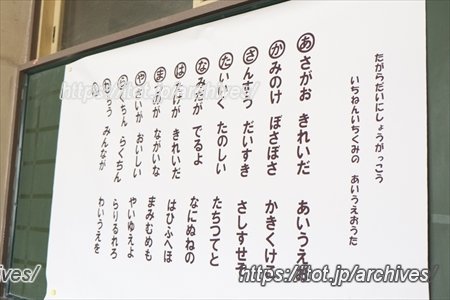 たがらだいにしょうがっこう
いちねんいちくみの あいうえおうた
あさがお きれいだ あいうえお
かみのけ ぼさぼさ かきくけこ
さんすう だいすき さしすせそ
たいいく たのしい たちつてと
なみだが でるよ なにぬねの
きれいだ はひふへほ
ながいな まみむめも
やさいが おいしい やいゆえよ
らくちん らくちん らりるれろ
みんなが わいうえを
https://itot.jp/archives/
https://itot.jp/archives/
ives/